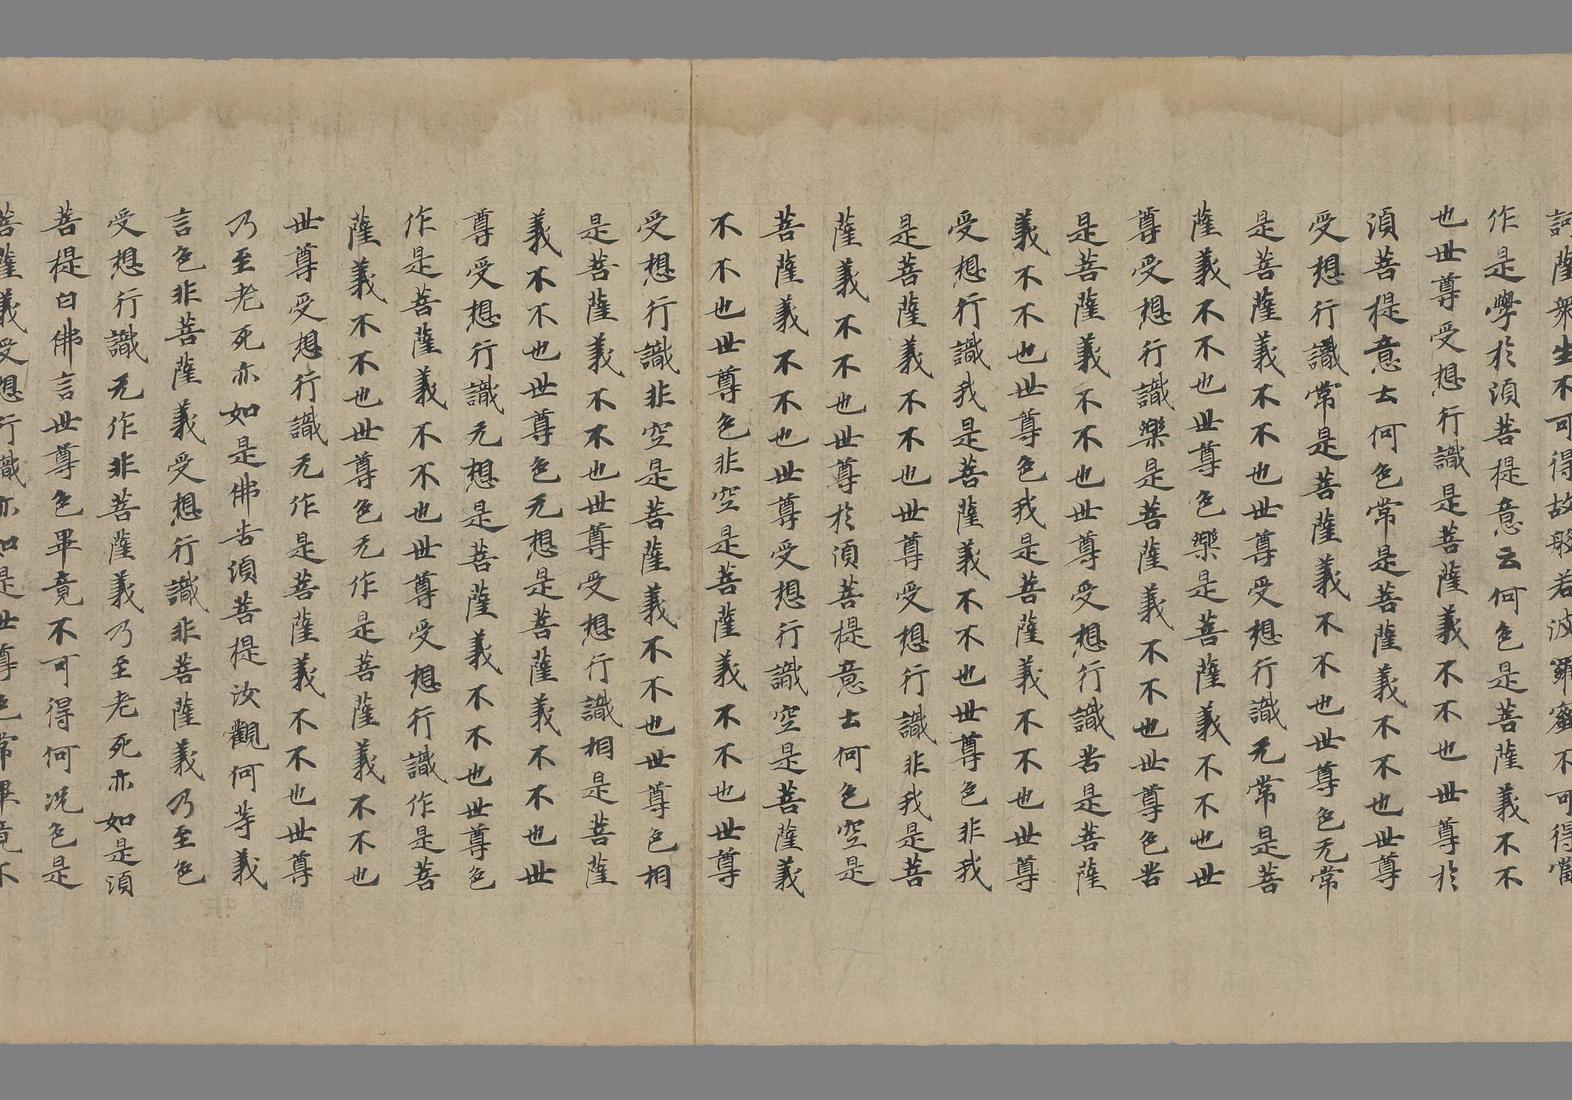 訶薩衆生不可得故般若波羅蜜不可得當
作是學於湏菩提意云何色是菩薩義不不
也世尊受想行識是菩薩義不不也世尊於
湏菩提意云何色常是菩薩義不不也世尊
受想行識常是菩薩義不不也世尊色无常
是菩薩義不不也世尊受想行識无常是菩
薩義不不也世尊色樂是菩薩義不不也世
尊受想行識樂是菩薩義不不也世尊色苦
是菩薩義不不也世尊受想行識苦是菩薩
義不不也世尊色我是菩薩義不不也世尊
受想行識我是菩薩義不不也世尊色非我
是菩薩義不不也世尊受想行識非我是菩
薩義不不也世尊於湏菩提意云何色空是
菩薩義不不也世尊受想行識空是菩薩義
不不也世尊色非空是菩薩義不不也世尊
受想行識非空是菩薩義不不也世尊色相
是菩薩義不不也世尊受想行識相是菩薩
義不不也世尊色无想是菩薩義不不也世
尊受想行識无想是菩薩義不不也世尊色
作是菩薩義不不也世尊受想行識作是菩
薩義不不也世尊色无作是菩薩義不不也
世尊受想行識无作是菩薩義不不也世尊
乃至老死亦如是佛告湏菩提汝觀何等義
言色非菩薩義受想行識非菩薩義乃至色
受想行識无作非菩薩義乃至老死亦如是湏
菩提白佛言世尊色畢竟不可得何況色是
菩薩義受想行識亦如是世尊色常畢竟不